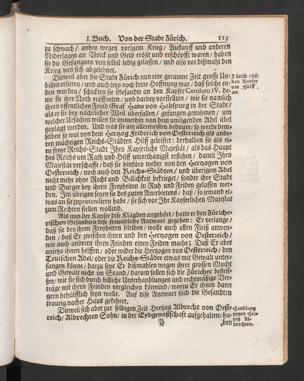 I. Buch. Von der Stadt Zürich. 113
zu schwach / anbey wegen vorigem Krieg / Auflauff und anderen
Niderlagen an Volck und Geld erößt und erschöpfft waren / haben
sie die Gefangnen von selbst ledig gelassen / und also vor dißmahl den
Krieg von sich abgelehnet.
Dieweil aber die Stadt Zürich nun eine geraume Zeit grosse Un-
billen erlitten / und auch jetzo noch keine Hoffnung war / daß solche en-
den wurden / schickten sie Gesandte an den Kayser Carolum IV. dä-
me sie ihre Noth eröffneten / und darbey vorstellten / wie sie zwar
ihren offentlichen Feind Graf Hans von Habspurg in der Stadt /
als er sie bey nächtlicher Weil überfallen / gefangen genohmen / um
welcher Ursachen willen sie immerhin von dem umligenden Adel übel
geplaget wurden. Und was sie am allermeisten bedauren / so werde dem
selben so wol von dem Herzog Frederich von Oesterreich als ande-
ren mächtigen Reichs-Städten Hilff geleistet: derhalben sie als ein
freye Reichs-Stadt Ihro Kayserliche Majestät / als das Haupt
des Reichs um Rath und Hilff unterthänigst ersuchen / damit Ihro
Majestät verschaffe / daß sie hinfüro weder von den Herzogen von
Oesterreich / noch auch den Reichs-Städten / und übrigem Adel
nicht mehr ohne Recht und Billichkeit betrübet / sonder ihre Stadt
und Burger bey ihren Freyheiten in Ruh und Friden gelassen wer-
den. Im übrigen seyen sie des guten Anerbietens / daß / so jemand et-
was an sie zuprätendieren habe / sie sich vor Ihr Kayserlichen Majestät
zum Rechten stellen wollind.
Als nun der Kayser diß Klägden angehört / hatte er den Züriche-
rischen Gesandten dise freundliche Antwort gegeben: Er verlange /
daß sie bey ihren Freyheiten bleiben / wolle auch allen Fleiß anwen-
den / daß Er zwüschen ihnen und den Herzogen von Oesterreich /
wie auch anderen ihren Feinden einen Friden mache; Daß Er aber
antezo ihnen helffen / oder wider die Herzogen von Oesterreich / den
Teutschen Adel / oder die Reichs-Städte etwas mit Gewalt unter-
fangen könne / darzu seye Er dißmahlen wegen ihrer grossen Macht
und Gewalt nicht im Stand / darum sollen sich die Züricher befleis-
sen / wie sie sich durch billiche Unterhandlungen und rechtmäßige Ver-
träge mit ihren Feinden vergleichen könnind / worzu Er ihnen dann
gern behülfflich seyn wolle. Auf dise Antwort sind die Gesandten
traurig nacher Haus gekehret.
Dieweil sich aber zur selbigen Zeit Herzog Albrecht von Oest-
reich / Albrechten Sohn / in der Eydgenoßschafft aufgehalten /